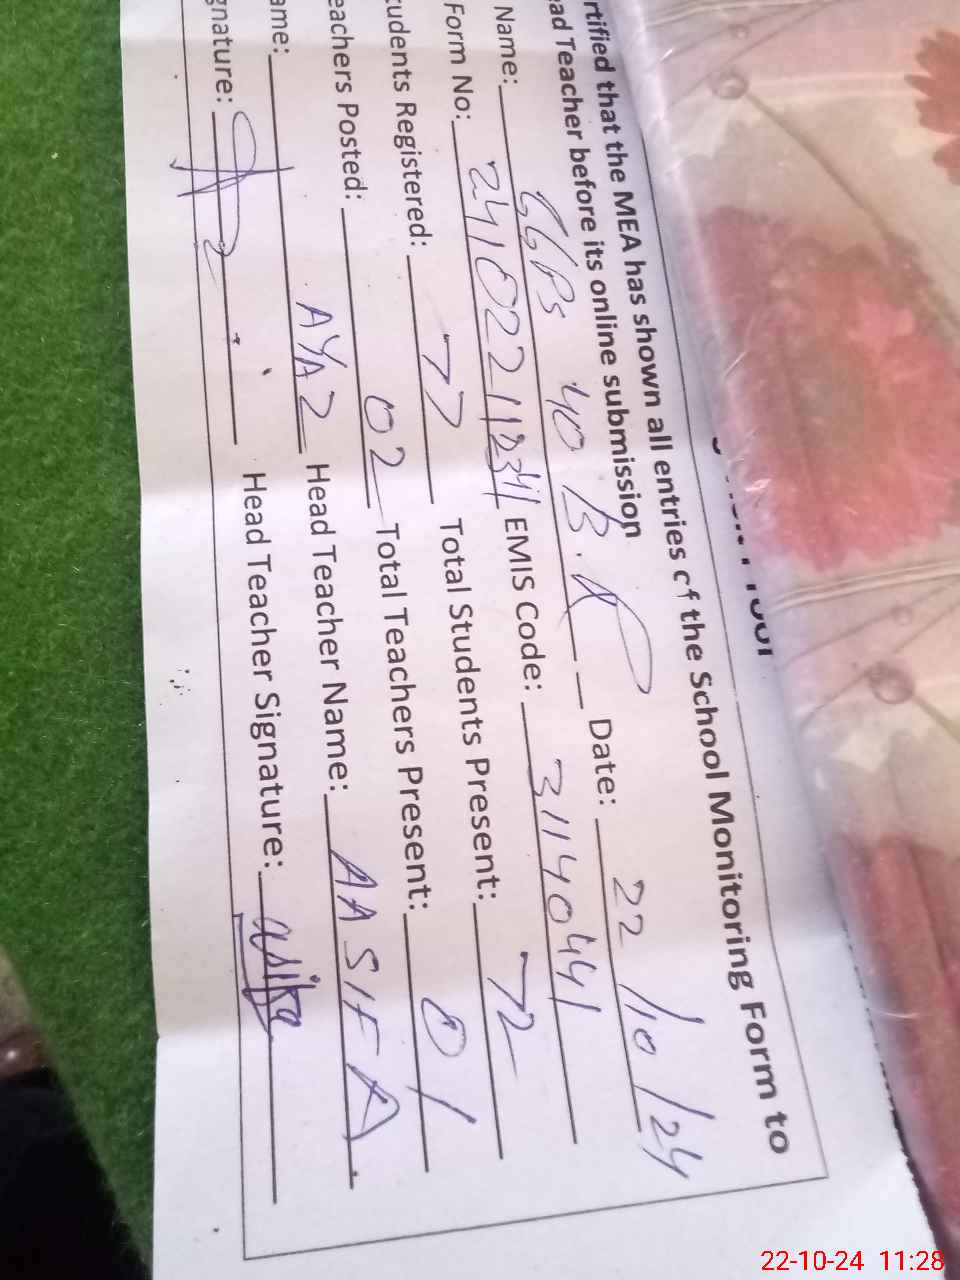 rtified that the MEA has shown all entries of the School Monitoring Form to
ead Teacher before its online submission
Name: GGPS 40 B.R Date: 22/10/24
Form No: EMIS Code: 31140441
tudents Registered: 77 Total Students Present: 72
eachers Posted: 02 Total Teachers Present: 01
ame: AYAZ Head Teacher Name: AASIFA
gnature: Head Teacher Signature: asifa
22-10-24 11:28